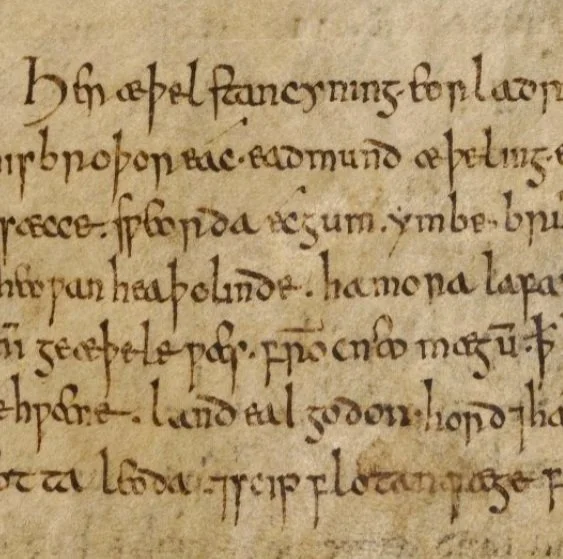 Her æþelstan cyning. eorla dr
is broþor eac. eadmund æþeling. e
sæcce. sƿeorda ecgum. ymbe. bru
heoƿan heaþolinde. hamora lafa
m geæþele ƿæs. frō cneo mægū. ꝥ
ehƿæne. land eal godon. hord ⁊ ha
ot ta leoda. ⁊ scip flotan fæge f